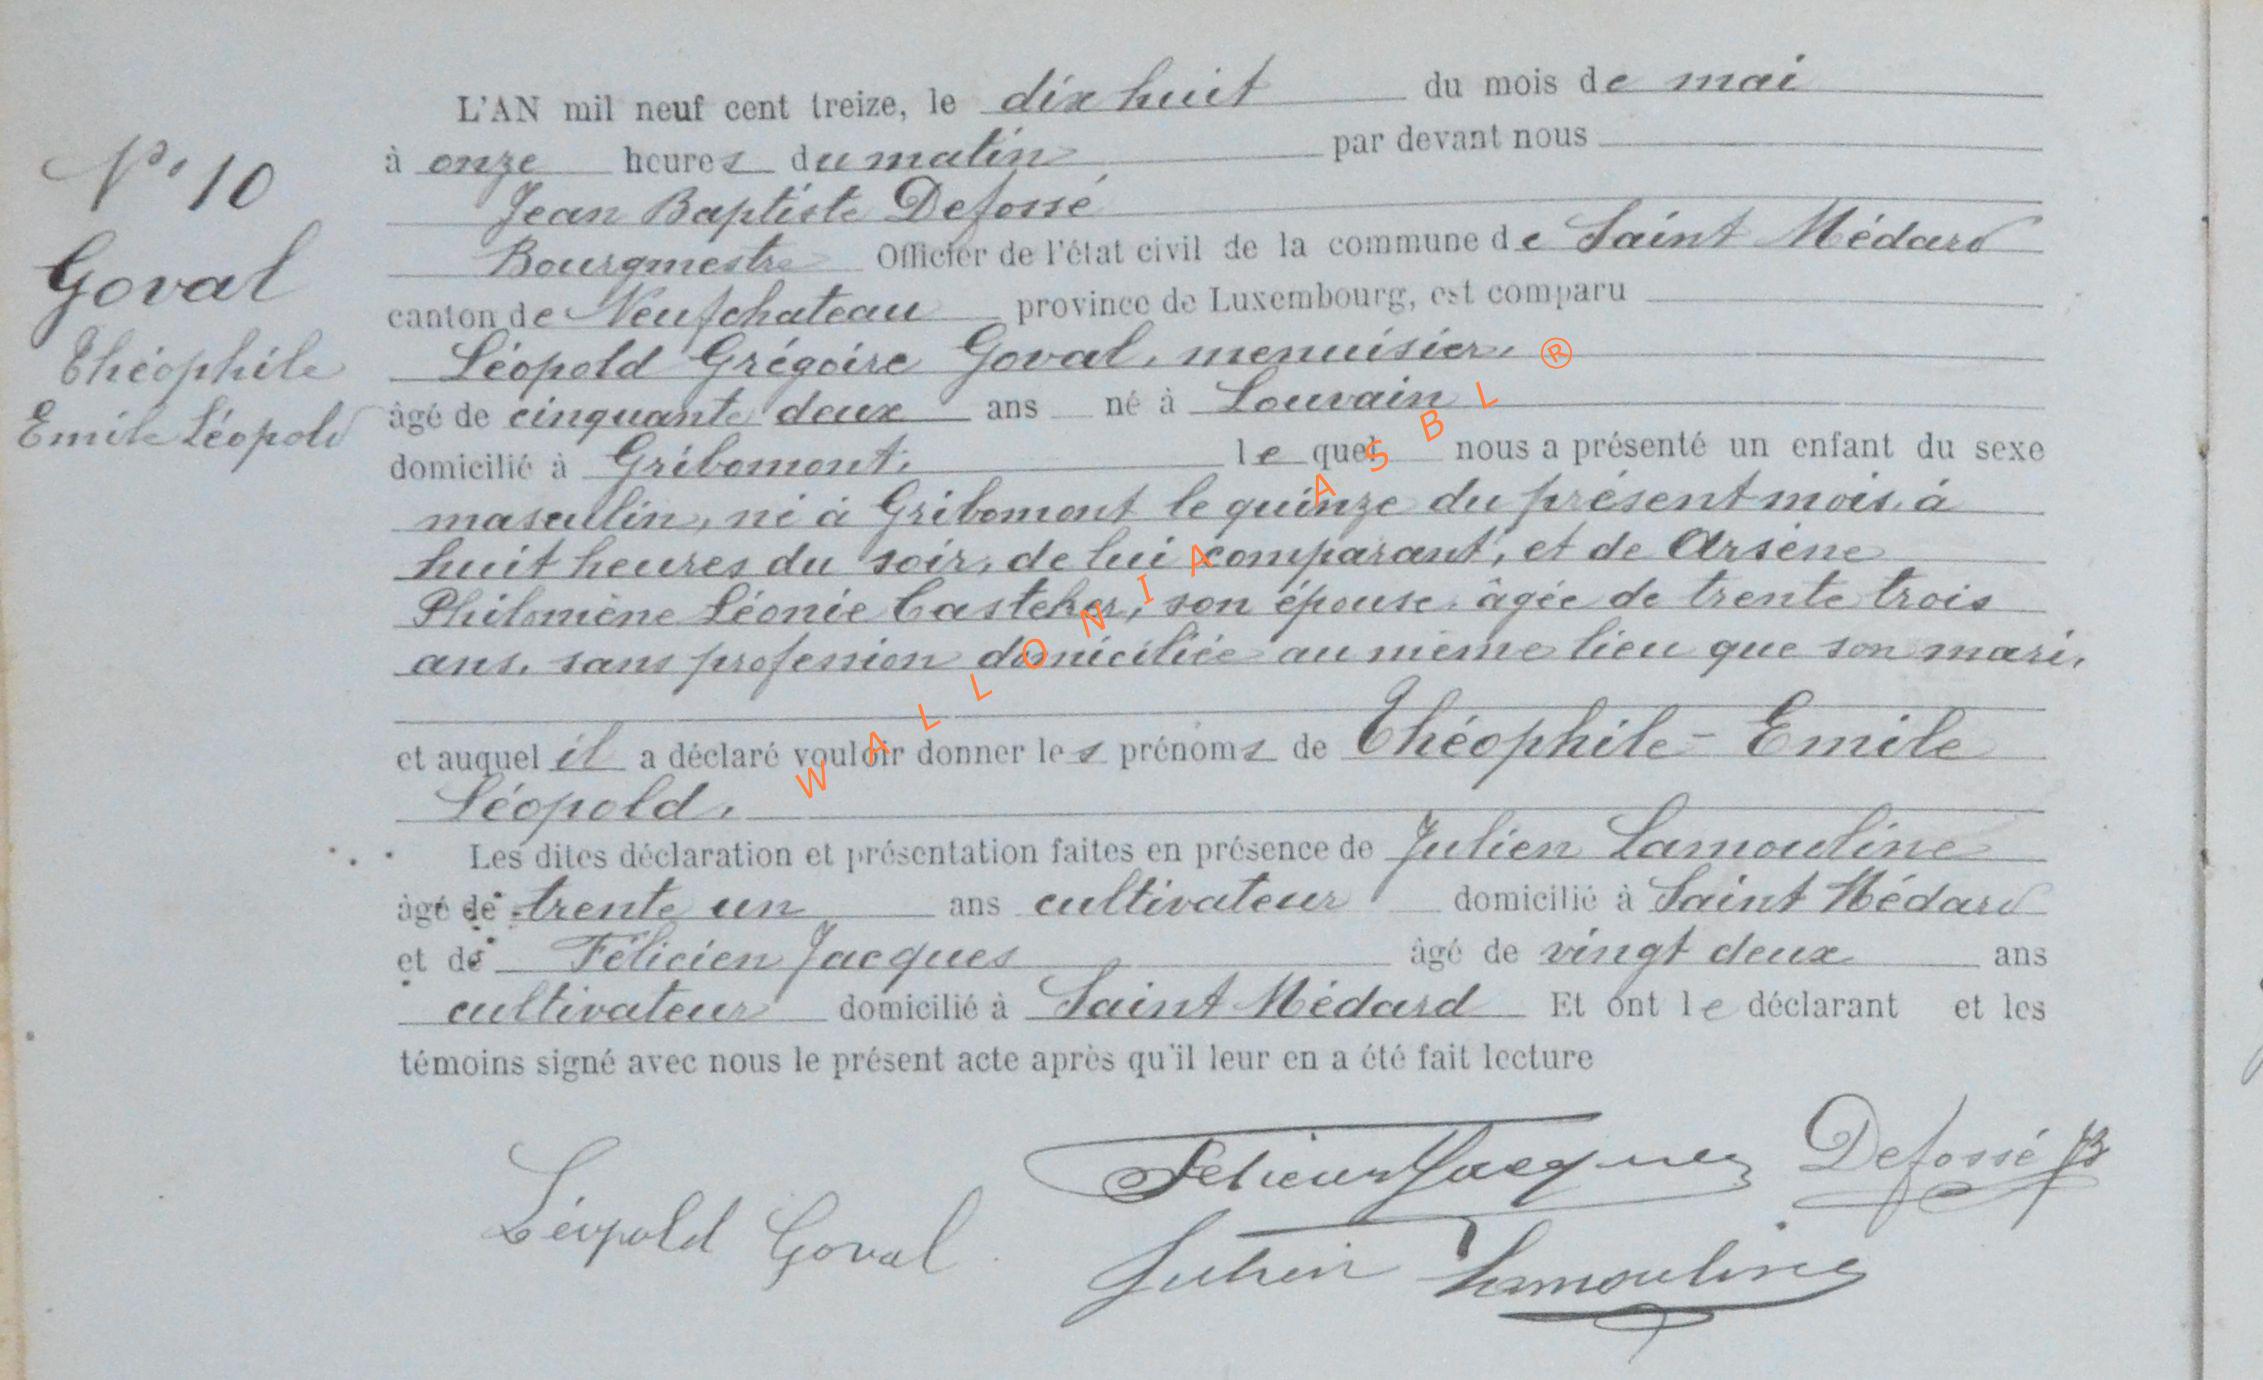 N° 10
Goval
Théophile
Emile Léopold
L'AN mil neuf cent treize, le dix huit du mois de mai
à onze heures du matin par devant nous
Jean Baptiste Defossé
Bourgmestre Officier de l'état civil de la commune de Saint Médard
canton de Neufchateau province de Luxembourg, est comparu
Léopold Grégoire Goval, menuisier,
âgé de cinquante deux ans né à Louvain
domicilié à Gribomont, le quel nous a présenté un enfant du sexe
masculin, né à Gribomont le quinze du présent mois, à
huit heures du soir, de lui comparant, et de Arsène
Philomène Léonie Casteker, son épouse, âgée de trente trois
ans, sans profession domiciliée au même lieu que son mari,
et auquel il a déclaré vouloir donner les prénoms de Théophile - Emile
Léopold.
Les dites déclaration et présentation faites en présence de Julien Lamouline
âgé de trente un ans cultivateur domicilié à Saint Médard
et de Félicien Jacques âgé de vingt deux ans
cultivateur domicilié à Saint Médard Et ont le déclarant et les
témoins signé avec nous le présent acte après qu'il leur en a été fait lecture
Felicien Jacques Defossé JB
Léopold Goval
Julien Lamouline
WALLONIA ASBL ®